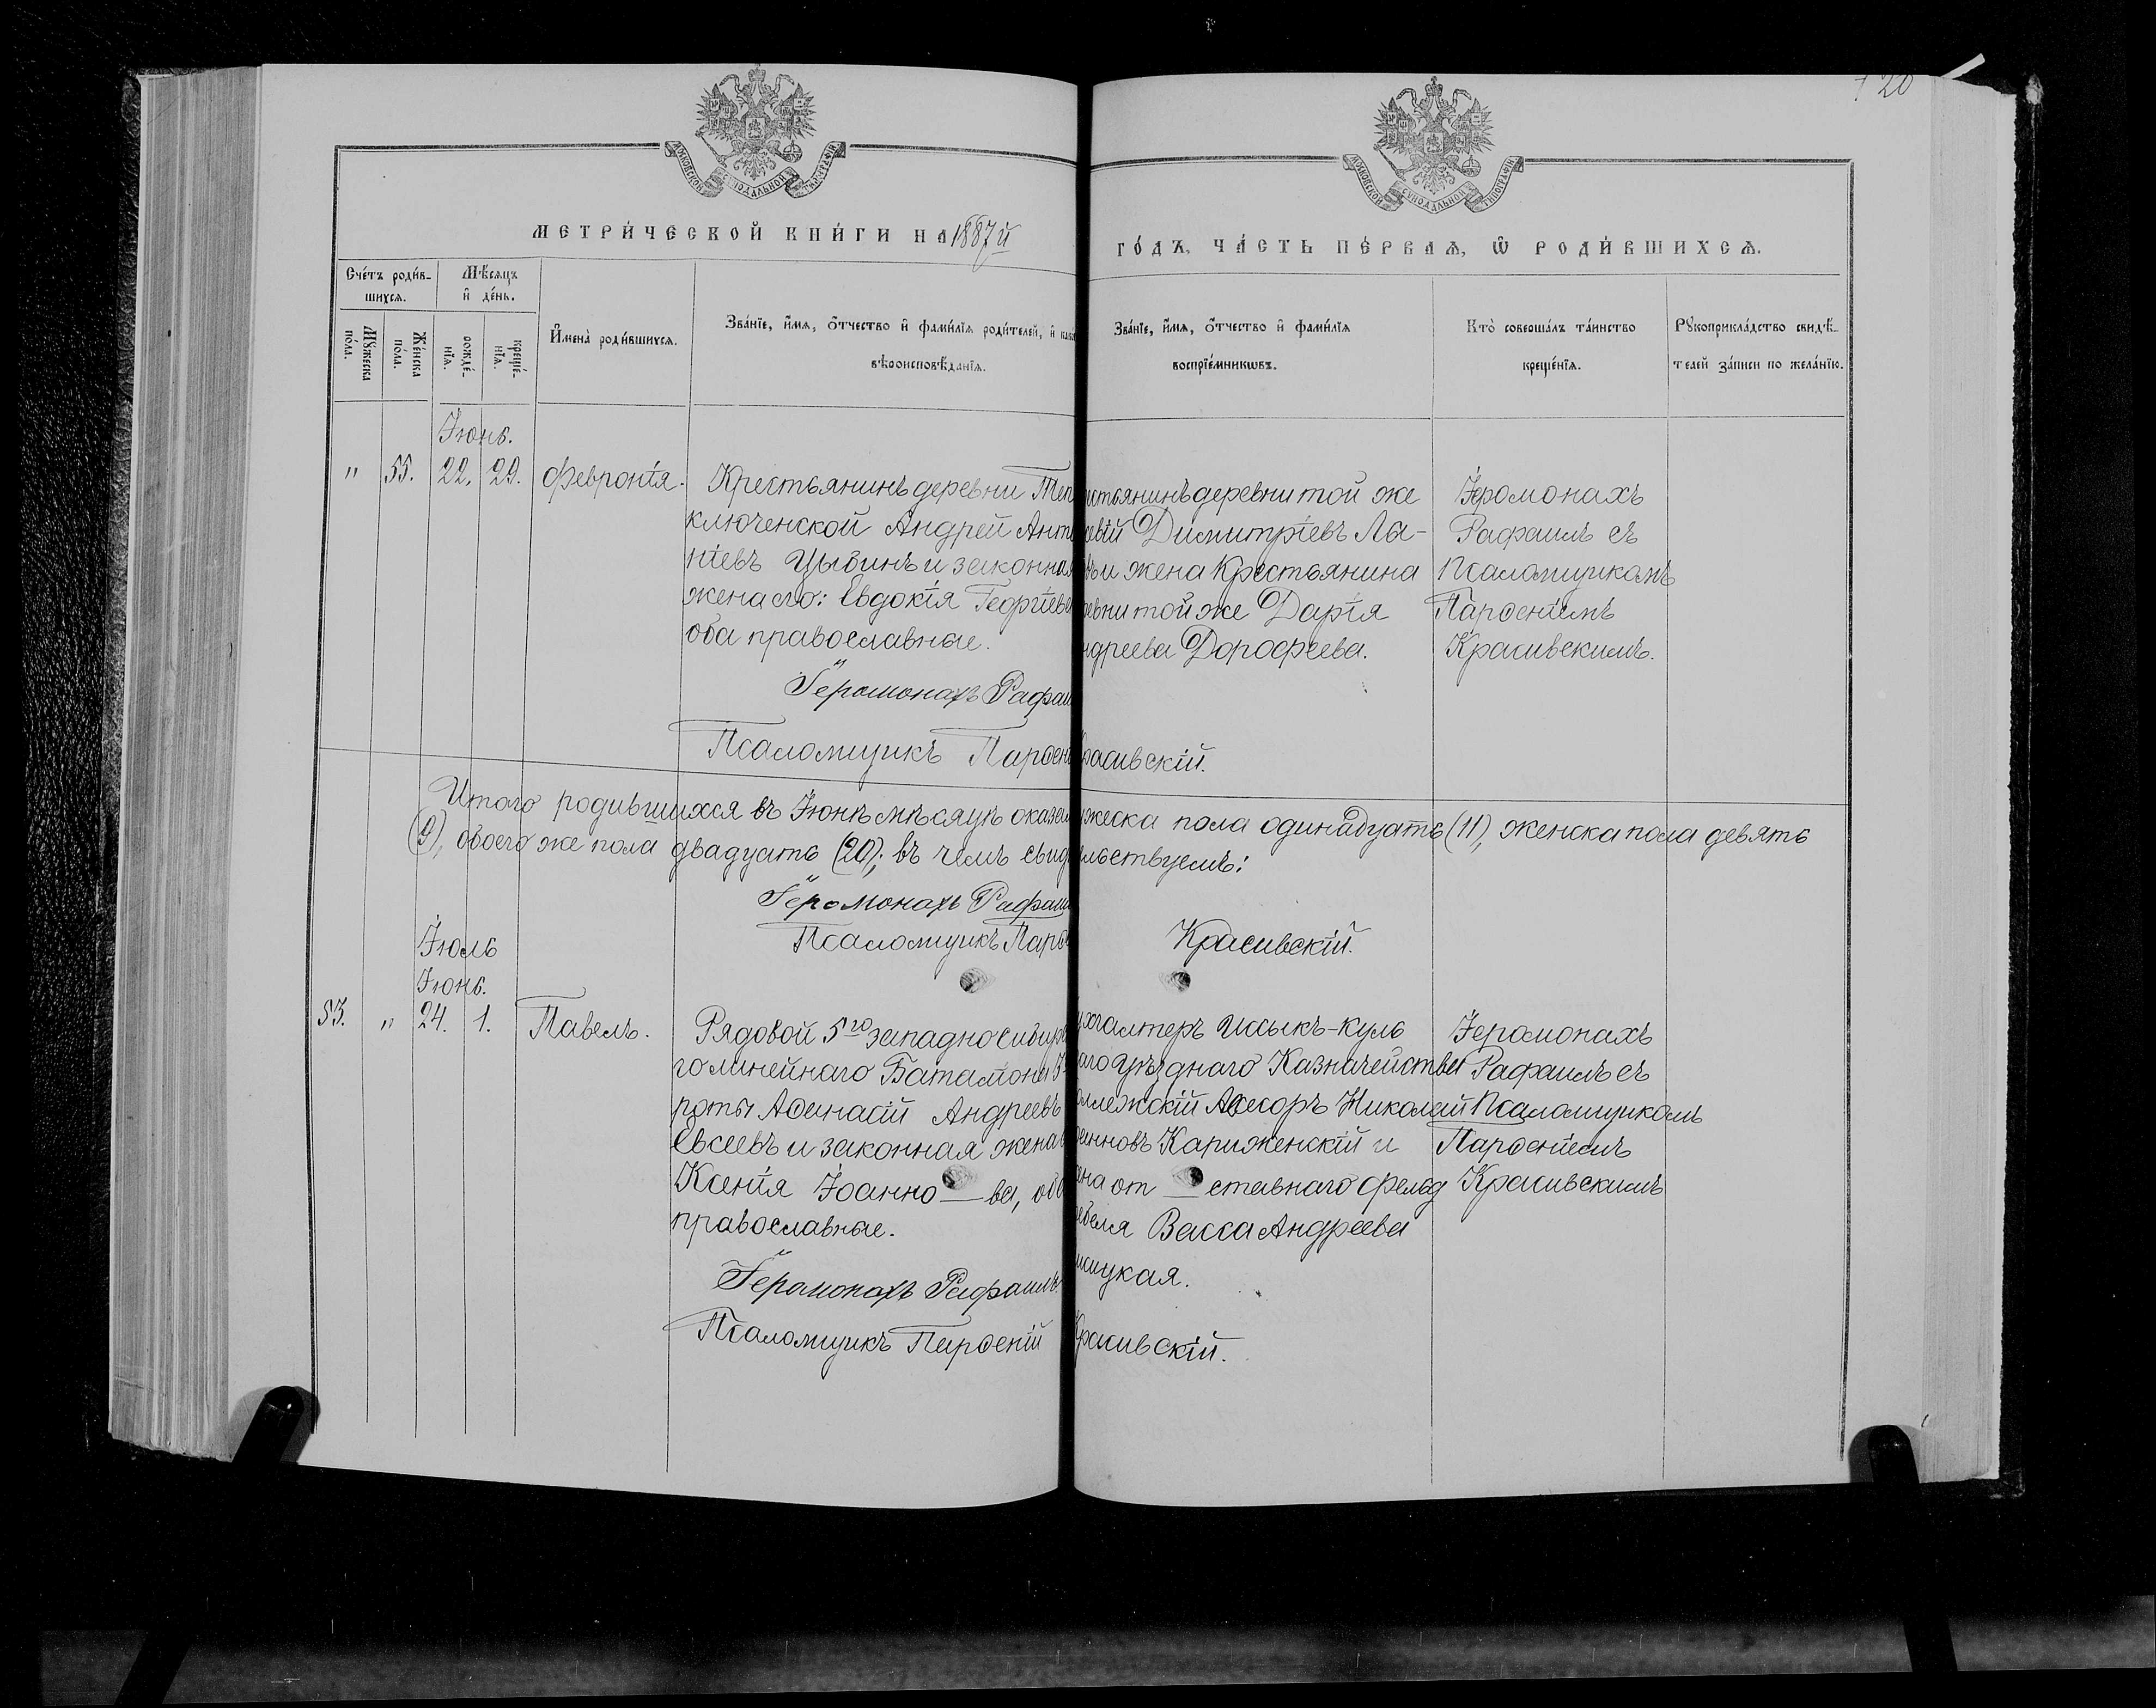 20
МОСКОВСКОЙ СѴНОДАЛЬНОЙ ТИПОГРАФІИ
МОСКОВСКОЙ СѴНОДАЛЬНОЙ ТИПОГРАФІИ
МЕТРИ́ЧЕСКОЙ КНИ́ГИ НА 1887й
ГО́ДЪ, ЧА́СТЬ ПЕ́РВАѦ, Ѡ҆ РОДИ́ВШИХСѦ.
Сче́тъ роди́в-
шихсѧ.
Мѣ́сѧцъ
и҆ де́нь.
Мꙋ́жеска
по́ла.
Же́нска
по́ла.
рожде́-
нїѧ.
креще́-
нїѧ.
И҆мена̀ роди́вшихсѧ.
Зва́нїе, и҆́мѧ, о҆́тчество и҆ фами́лїѧ роди́телей, и҆
вѣроисповѣ́данїѧ.
Зва́нїе, и҆́мѧ, о҆́тчество и҆ фами́лїѧ
воспрїе́мникѡвъ.
Кто̀ соверша́лъ та́инство
креще́нїѧ.
Рꙋкоприкла́дство свидѣ́-
телей за́писи по жела́нїю.
Іюнь.
" 55. 22. 29. Февронія.
Крестьянинъ деревни Теп
ключенской Андрей Анто
ніевъ Цыбинъ и законная
жена его: Евдокія Георгіева
оба православные.
Іеромонахъ Рафаи
Псаломщикъ Парѳені
стьянинъ деревни той же
евій Димитріевъ Ла-
въ и жена Крестьянина
евни той же Дарія
ндреева Дорофеева.
расивскій.
Іеромонахъ
Рафаилъ съ
Псаломщикомъ
Парѳеніемъ
Красивскимъ.
Итого родившихся въ Іюнѣ мѣсяцѣ оказал ужеска пола одинадцать (11), женска пола девять
(9), обоего же пола двадцать (20); въ чемъ свидѣ льствуемъ:
Іеромонахъ Рафаи
Псаломщикъ Парѳ Красивскій.
Іюль
Іюнь.
53. " 24. 1. Павелъ.
Рядовой 5го западно Сибирс
го линейнаго Баталіона
роты Аѳанасій Андреевъ
Евсеевъ и законная жена
Ксенія Іоанно — ва, оба
православные.
Іеромонахъ Рафаилъ
Псаломщикъ Парѳеній
ухгалтеръ Иссыкъ-куль
аго уѣзднаго Казначейства
оллежскій Асесоръ Николай
оанновъ Кариженскій и
ена от — ставнаго фельд
ебеля Васса Андреева
ицкая.
Красивскій.
Іеромонахъ
Рафаилъ съ
Псаломщикомъ
Парѳеніемъ
Красивскимъ